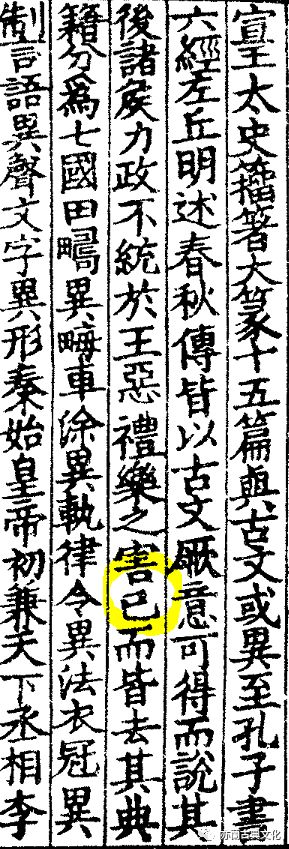 宣王太史籒著大篆十五篇與古文或異至孔子書
六經左丘明述春秋傳皆以古文厥意可得而說其
後諸矦力政不統於王惡禮樂之害己而皆去其典
籍分為七國田疇異畮車涂異軌律令異法衣冠異
制言語異聲文字異形秦始皇帝初兼天下丞相李
亦南古典文化